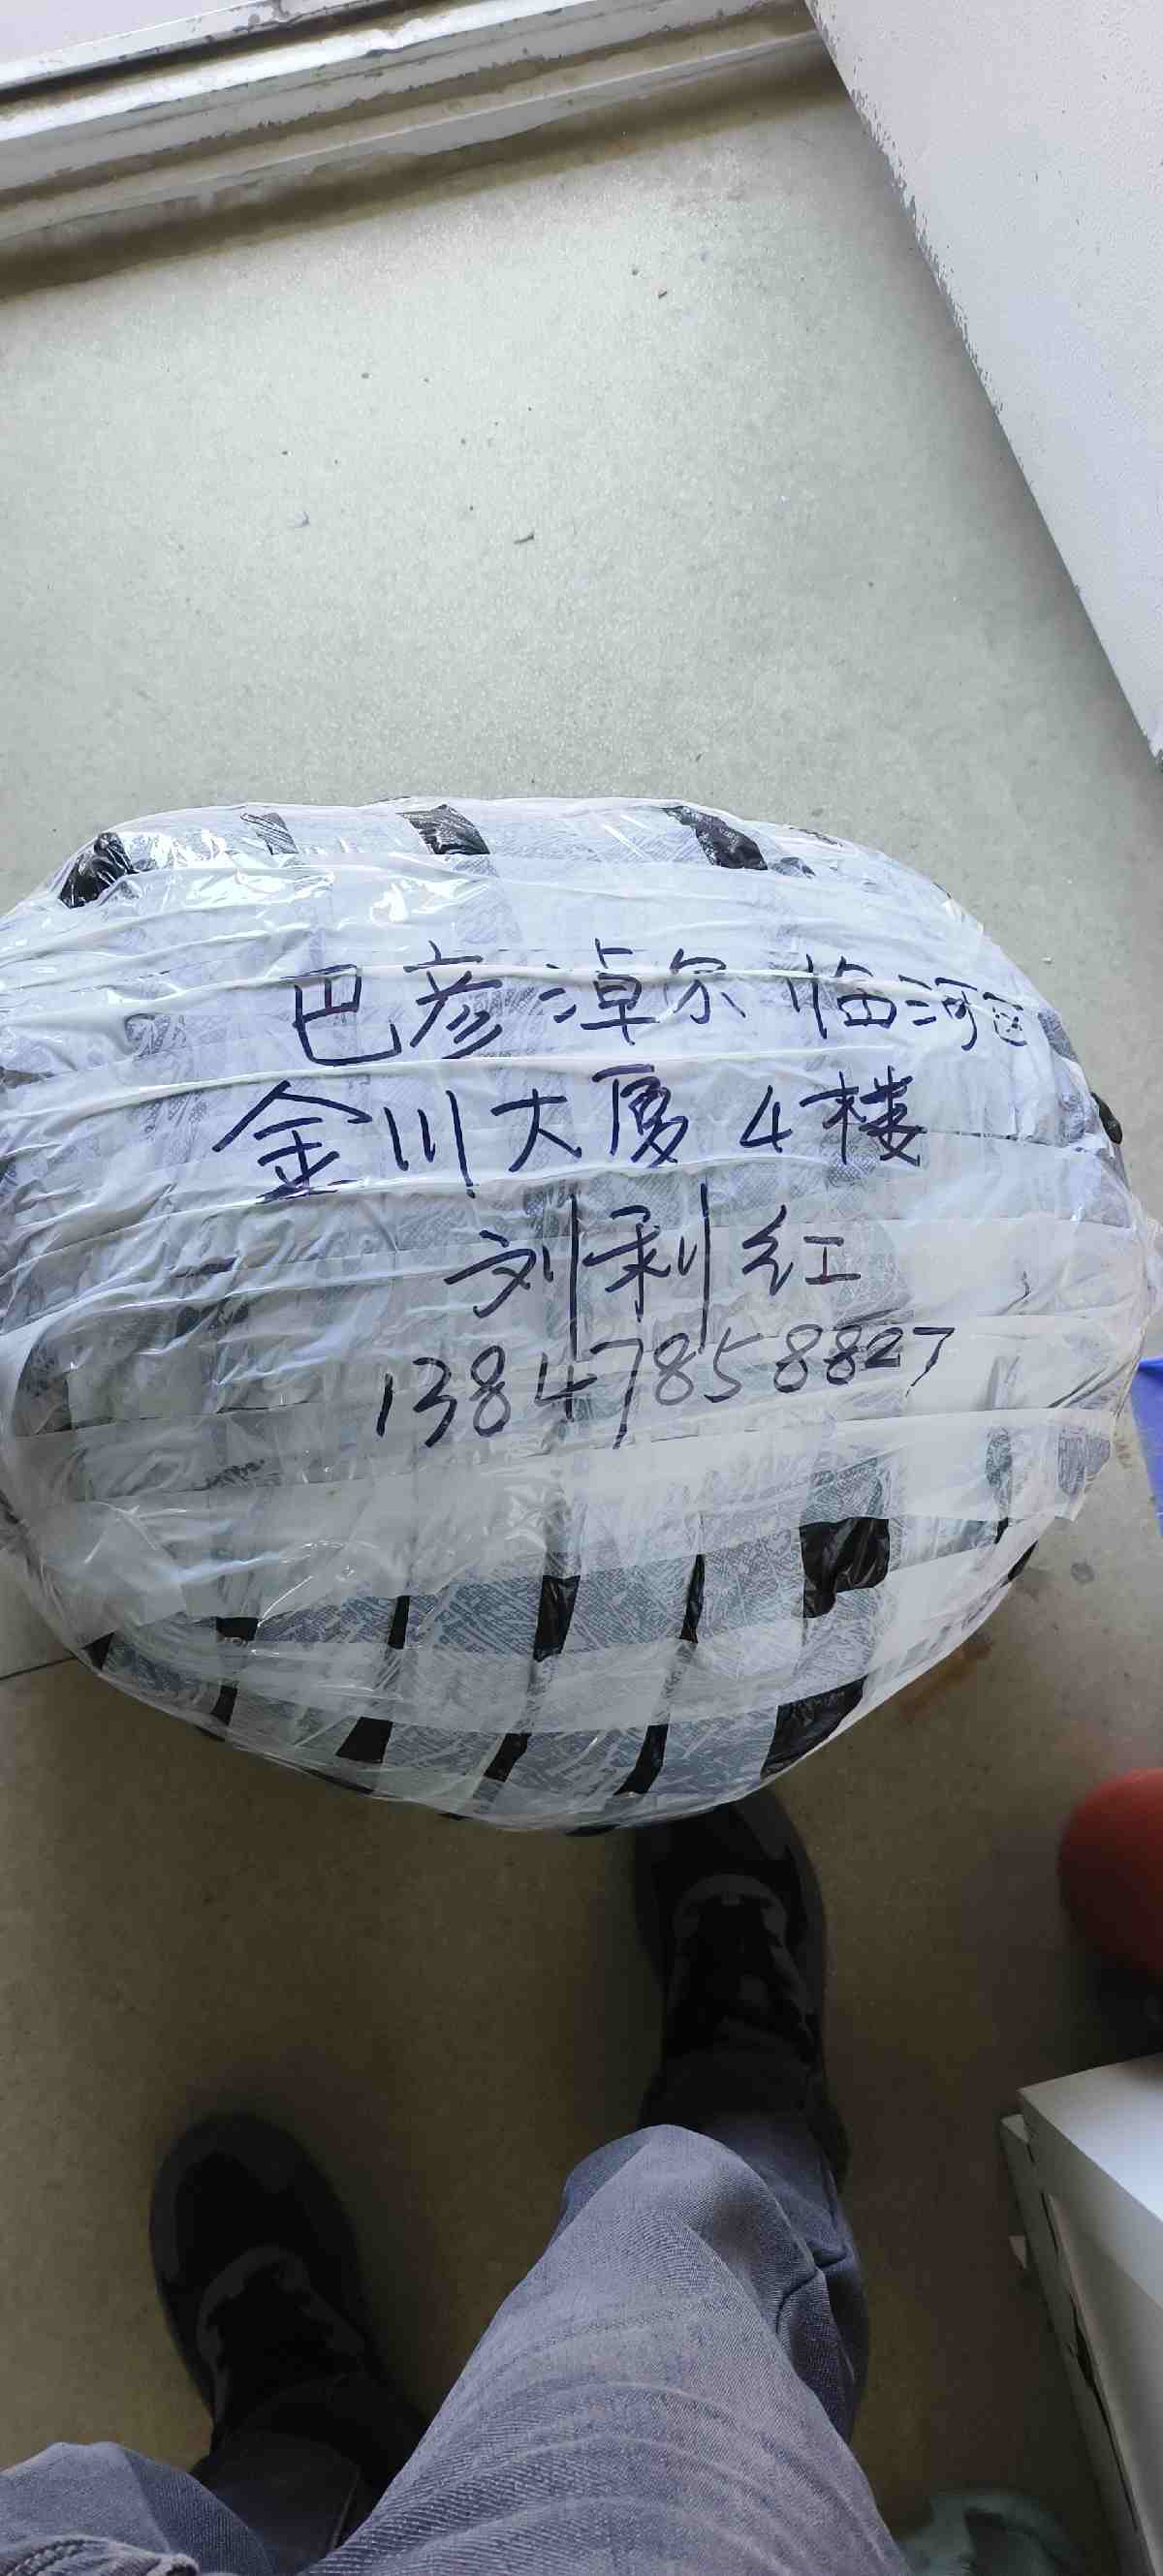 巴彦淖尔临河区
金川大厦4楼
刘利红
13847858827